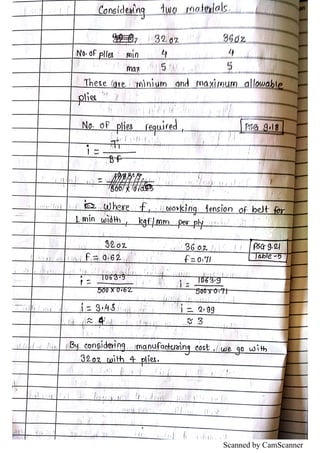 Considering two materials.
32 oz 36 oz
No. of plies min 4 4
max 5 5
These are minium and maximum allowable
plies
No. of plies required, PSG 9.18
i = Ti
Bf
=
where f, working tension of belt for
1 min width, kgf/mm per ply
32 oz 36 oz PSG 9.21
f = 0.62 f = 0.71 Table -5
i = 1063.9 i = 1063.9
500 x 0.62 500 x 0.71
i = 3.43 i = 2.99
≈ 4 ≈ 3
By considering manufacturing cost, we go with
32 oz with 4 plies.
Scanned by CamScanner